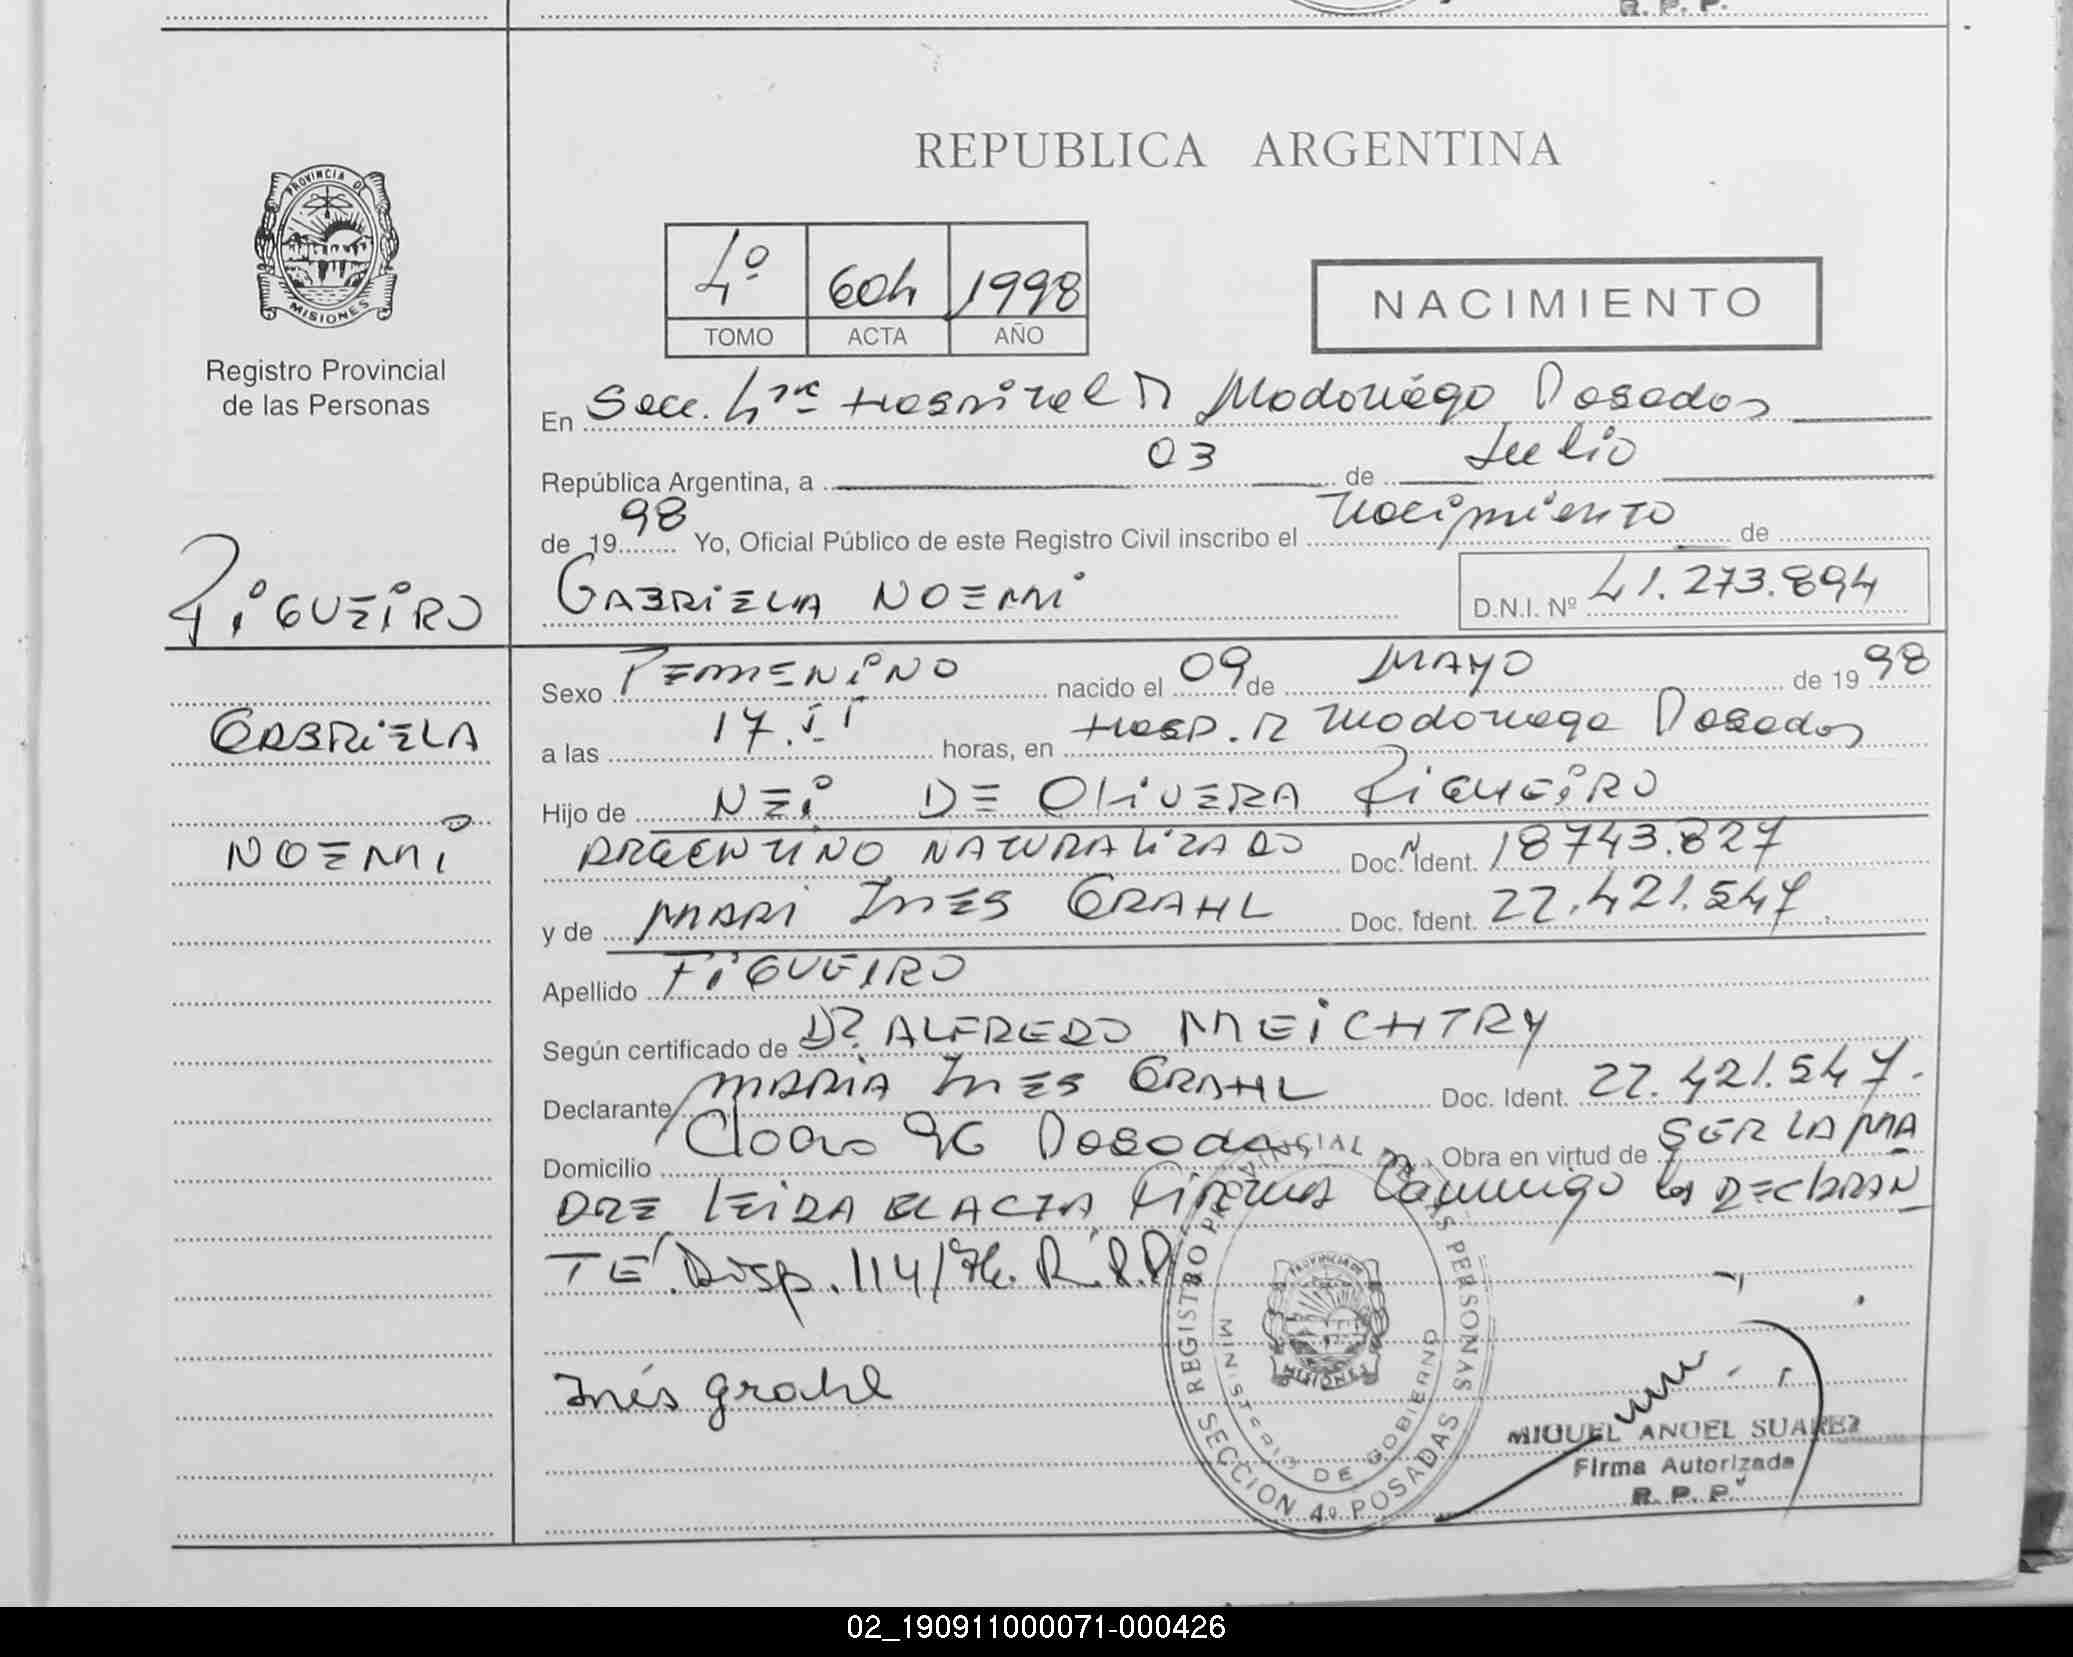 R. P. P.
REPUBLICA ARGENTINA
PROVINCIA DE
MISIONES
4º 604 1998
TOMO ACTA AÑO
NACIMIENTO
Registro Provincial
de las Personas
En Secc. 4ta Hospital R Madariaga Posadas
República Argentina, a 03 de Julio
de 1998 Yo, Oficial Público de este Registro Civil inscribo el Nacimiento de
FIGUEIRO
GABRIELA NOEMI D.N.I. Nº 41.273.894
GABRIELA
NOEMI
Sexo FEMENINO nacido el 09 de MAYO de 1998
a las 17. horas, en Hosp. R Madariaga Posadas
Hijo de NEI DE OLIVERA FIGUEIRO
ARGENTINO NATURALIZADO Doc. Ident. 18743.827
y de MARI INES GRAHL Doc. Ident. 22.421.547
Apellido FIGUEIRO
Según certificado de DR. ALFREDO MEICHTRY
Declarante MARIA INES GRAHL Doc. Ident. 22.421.547.
Domicilio 96 Posadas Obra en virtud de SER LA MA
DRE LEIDA EL ACTA Firma Conmigo la DECLARAN
TE. Disp. 114/ R.P.P
Inés grahl
REGISTRO PROVINCIAL DE LAS PERSONAS
MINISTERIO DE GOBIERNO
PROVINCIA DE
MISIONES
SECCION 4º POSADAS
MIGUEL ANGEL SUAREZ
Firma Autorizada
R. P. P.
02_190911000071-000426